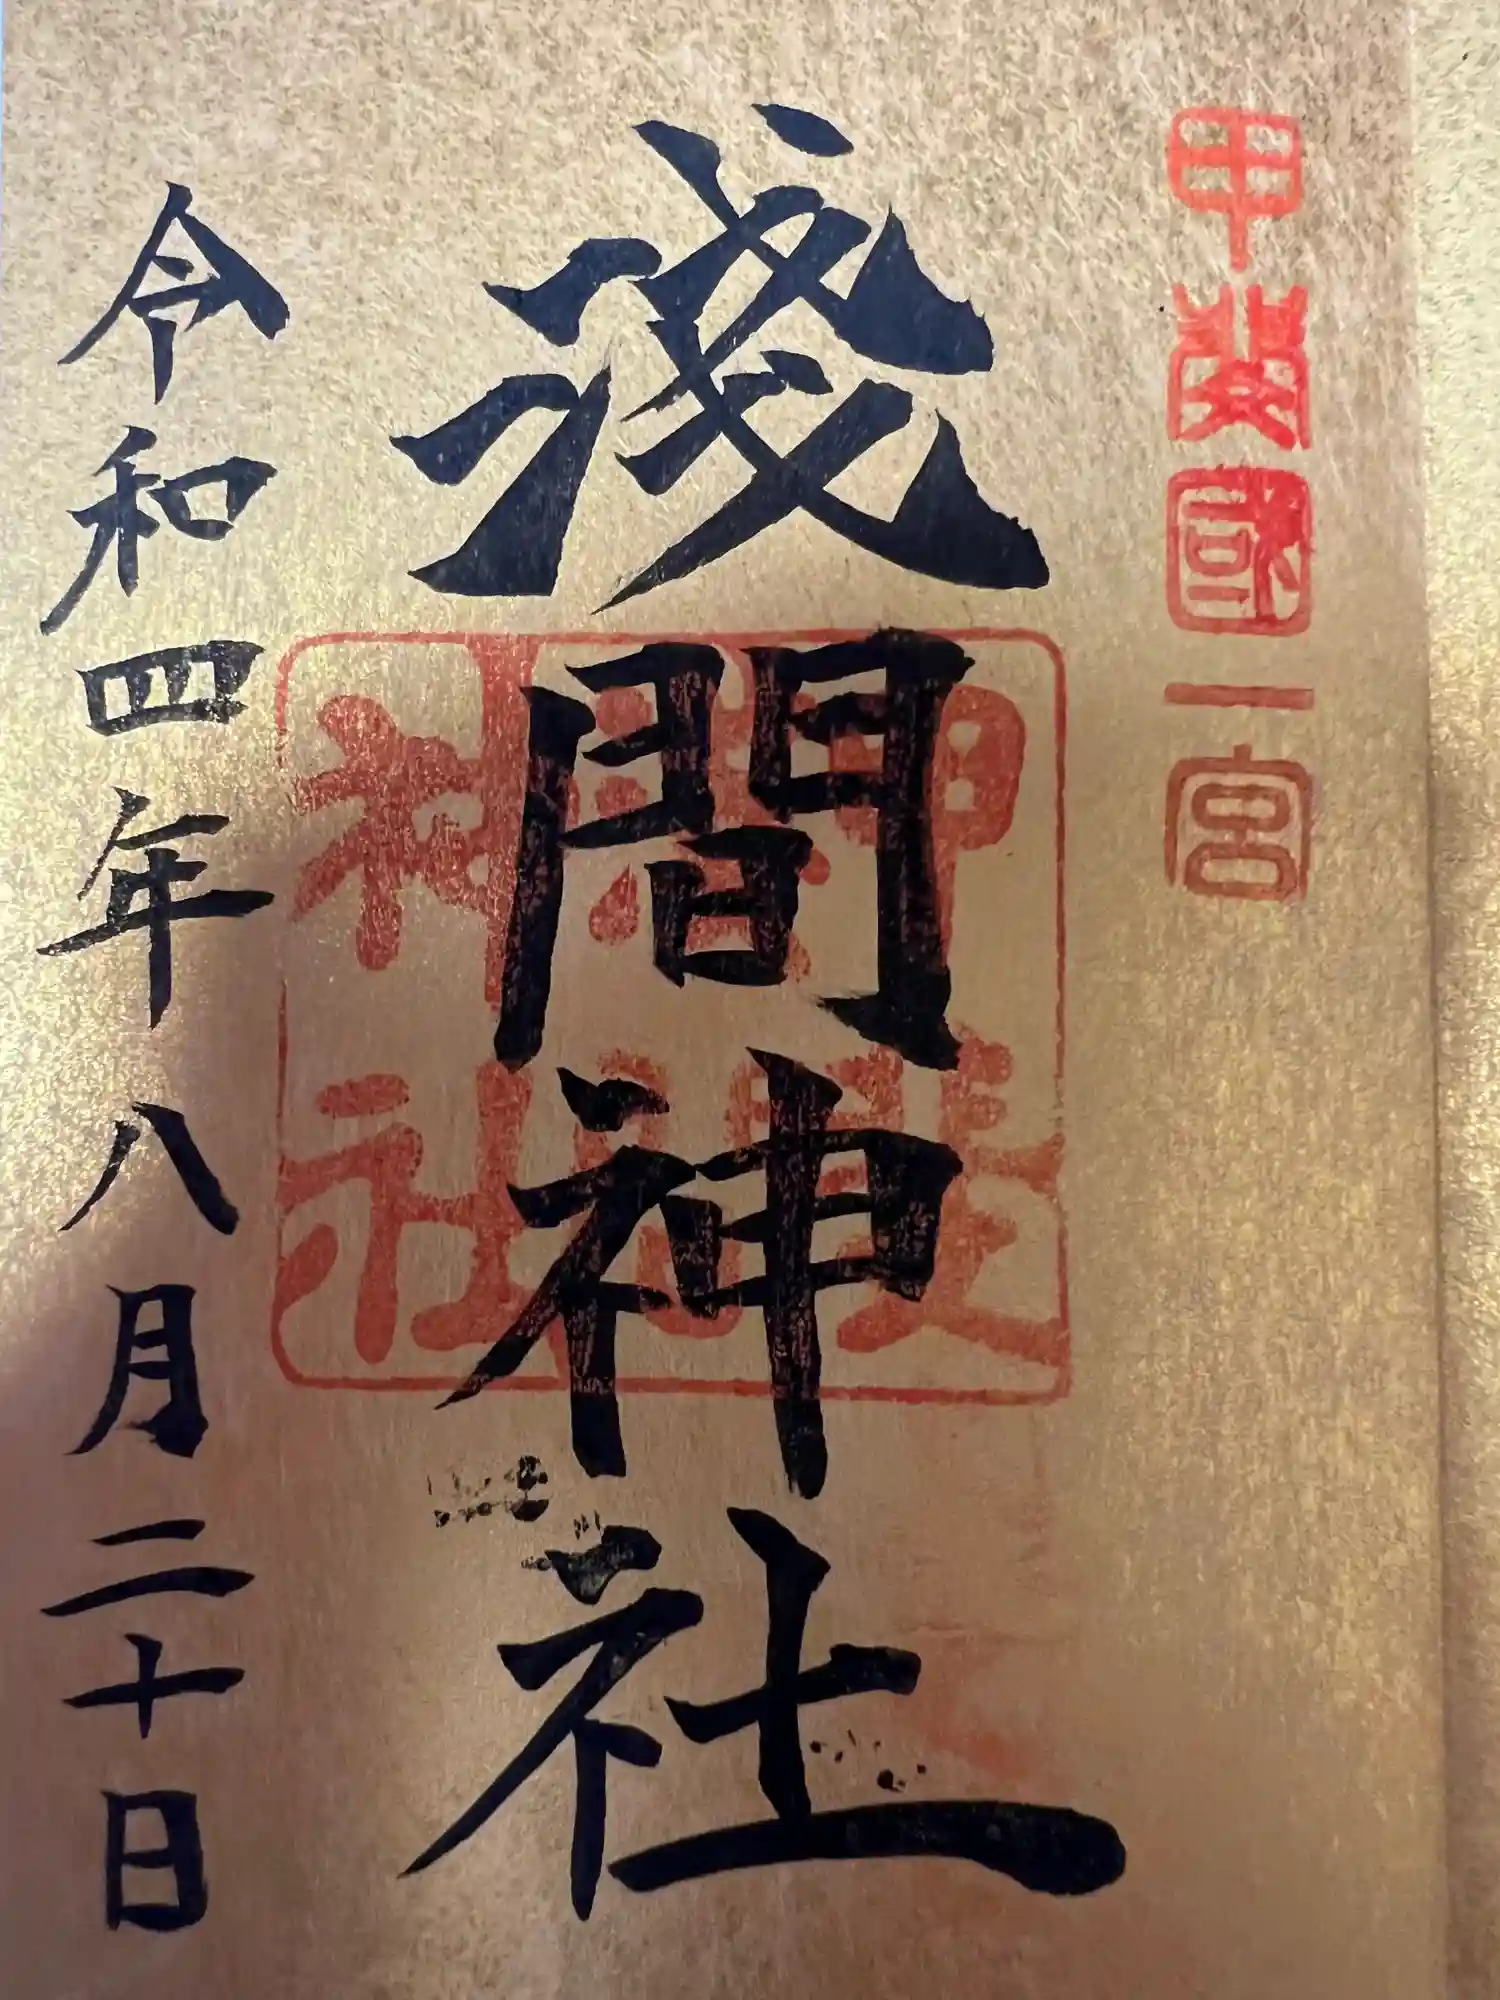 甲斐國一宮
淺間神社
令和四年八月二十日